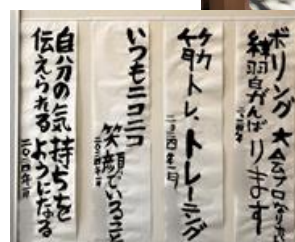 ボリング 大会プロペ
練習がんばります
筋トレ、トレーニング
二〇二四年一月
いつもニコニコ
笑顔でいること
自分の気持ちを
伝えられるようになる
二〇二四年一月